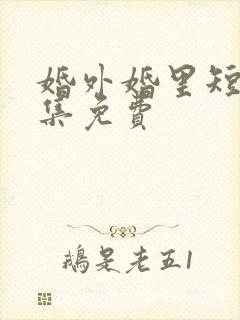 婚外婚里短
集免費
鵝是老五1